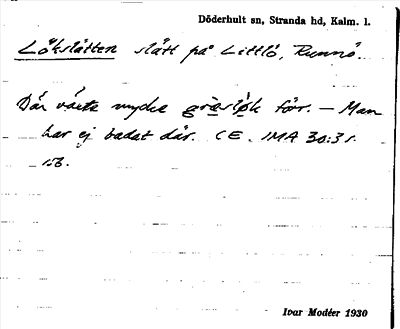 Döderhult sn, Stranda hd, Kalm. l.
Lökslåtten slått på Littlö, Runnö.
Där växte mycke gräslök förr. — Man
har ej badat där. CE. IMA 30:3 s.
156.
Ivar Modéer 1930